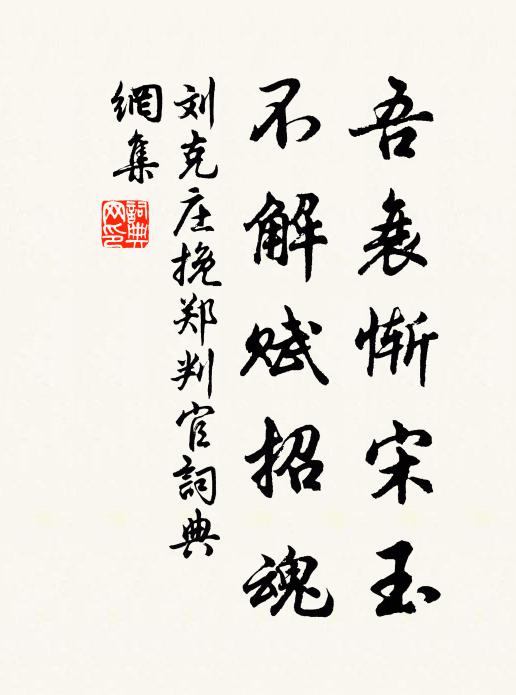 吾衰惭宋玉
不解赋招魂
刘克庄挽郑判官詞典
網集
詞典
网印